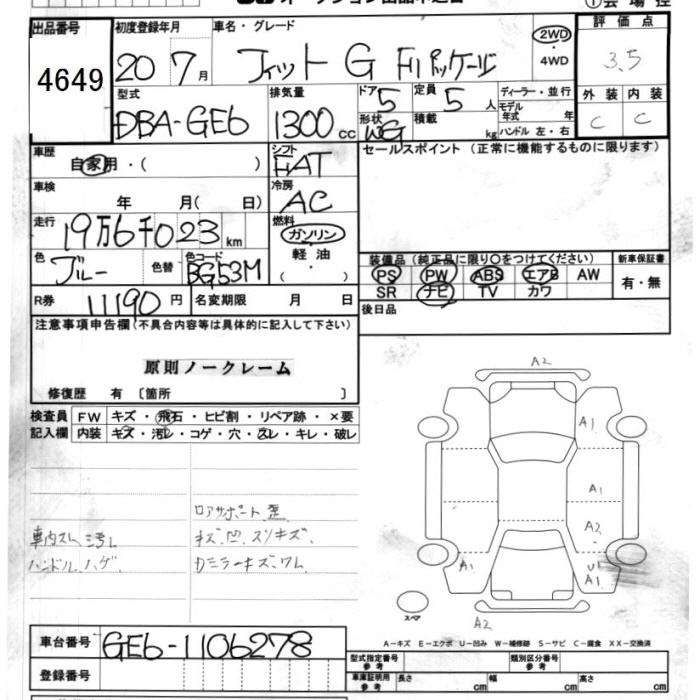 出品番号 初度登録年月 車名・グレード 評価点
4649 20 7月 フィット G Fパッケージ 2WD・4WD 3.5
型式 排気量 ドア 定員 ディーラー・並行 外装 内装
DBA-GE6 1300cc 5 5人 モデル年式 年 C C
形状 WG 積載 kg ハンドル 左・右
車歴 自家用・( ) シフト FAT セールスポイント (正常に機能するものに限ります)
車検 年 月( 日) 冷房 AC
走行 19万6千023km 燃料 ガソリン・軽油・( )
色 ブルー 色替 色コード BG53M
装備品 (純正品に限り〇をつけてください) 新車保証書
PS PW ABS エアB AW 有・無
SR ナビ TV カワ
R券 11190円 名変期限 月 日 後日品
注意事項申告欄(不具合内容等は具体的に記入して下さい)
原則ノークレーム
修復歴 有〔箇所 〕
検査員 FW キズ・飛石・ヒビ割・リペア跡・×要
記入欄 内装 キズ・汚レ・コゲ・穴・スレ・キレ・破レ
A2
A1
A1
ロアサポート歪
A2
車内スレ 汚レ キズ、凹、スリキズ、
ハンドルハゲ、 カミラーキズ、ワレ
A1 U1
A1
スペア
A2
A-キズ E-エクボ U-凹み W-補修跡 S-サビ C-腐食 XX-交換済
車台番号 GE6-1106278
型式指定番号 参考 類別区分番号 参考
登録番号 車庫証明用 参考 長さ cm 幅 cm 高さ cm